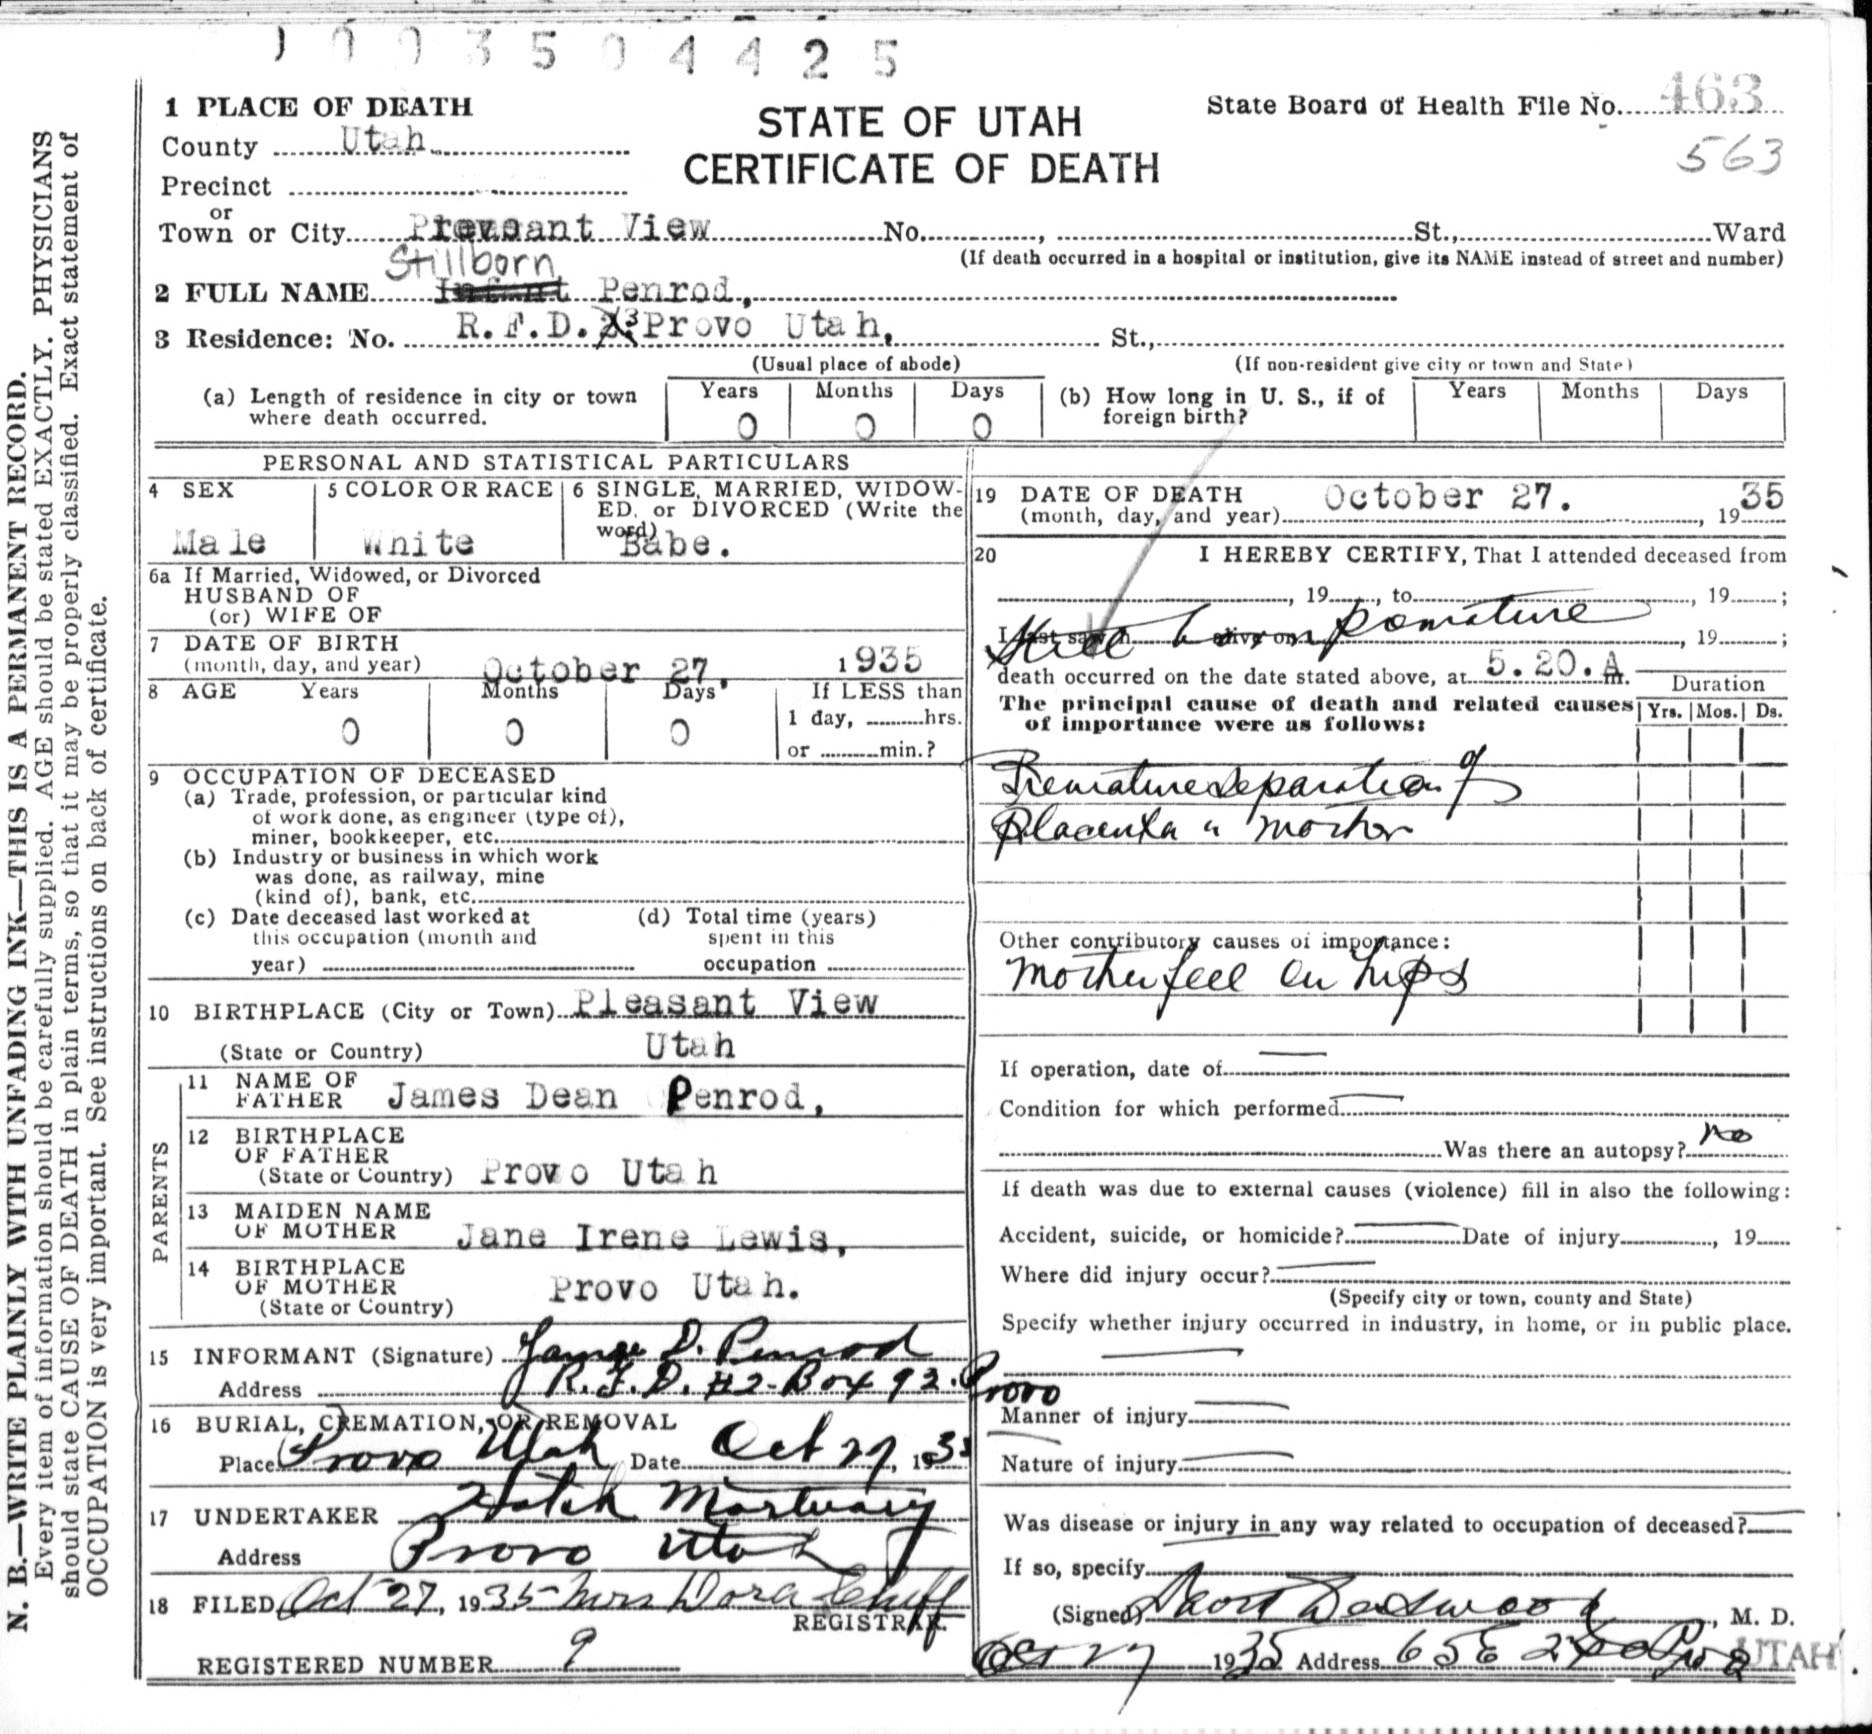 1 0 0 3 5 0 4 4 2 5
1 PLACE OF DEATH
County Utah.
Precinct
or
Town or City Pleasant View No. , St., Ward
STATE OF UTAH
CERTIFICATE OF DEATH
State Board of Health File No. 463
563
(If death occurred in a hospital or institution, give its NAME instead of street and number)
Stillborn
2 FULL NAME Infant Penrod,
3 Residence: No. R.F.D. 3 Provo Utah, St.,
(Usual place of abode) (If non-resident give city or town and State)
(a) Length of residence in city or town where death occurred. Years 0 Months 0 Days 0
(b) How long in U. S., if of foreign birth? Years Months Days
PERSONAL AND STATISTICAL PARTICULARS
4 SEX Male
5 COLOR OR RACE White
6 SINGLE, MARRIED, WIDOW-
ED, or DIVORCED (Write the
word) Babe.
6a If Married, Widowed, or Divorced
HUSBAND OF
(or) WIFE OF
7 DATE OF BIRTH
(month, day, and year) October 27, 1935
8 AGE Years 0 Months 0 Days 0
If LESS than
1 day, hrs.
or min.?
9 OCCUPATION OF DECEASED
(a) Trade, profession, or particular kind
of work done, as engineer (type of),
miner, bookkeeper, etc.
(b) Industry or business in which work
was done, as railway, mine
(kind of), bank, etc.
(c) Date deceased last worked at
this occupation (month and
year)
(d) Total time (years)
spent in this
occupation
10 BIRTHPLACE (City or Town) Pleasant View
(State or Country) Utah
PARENTS
11 NAME OF
FATHER James Dean Penrod,
12 BIRTHPLACE
OF FATHER
(State or Country) Provo Utah
13 MAIDEN NAME
OF MOTHER Jane Irene Lewis,
14 BIRTHPLACE
OF MOTHER
(State or Country) Provo Utah.
15 INFORMANT (Signature) James D. Penrod
Address R.F.D. #2 Box 92. Provo
16 BURIAL, CREMATION, OR REMOVAL
Place Provo Utah Date Oct 27, 1935
17 UNDERTAKER Hatch Mortuary
Address Provo Utah
18 FILED Oct 27, 1935 Mrs Dora
REGISTRAR.
REGISTERED NUMBER 9
19 DATE OF DEATH
(month, day, and year) October 27. , 1935
20 I HEREBY CERTIFY, That I attended deceased from
, 19 , to , 19 ;
I last saw h alive on , 19 ;
Still born
death occurred on the date stated above, at 5.20.A m.
The principal cause of death and related causes
of importance were as follows:
Duration
Yrs. Mos. Ds.
Premature separation of
Placenta " mother
Other contributory causes of importance:
mother fell on hips
If operation, date of
Condition for which performed
Was there an autopsy? no
If death was due to external causes (violence) fill in also the following:
Accident, suicide, or homicide? Date of injury , 19
Where did injury occur?
(Specify city or town, county and State)
Specify whether injury occurred in industry, in home, or in public place.
Manner of injury
Nature of injury
Was disease or injury in any way related to occupation of deceased?
If so, specify
(Signed) , M. D.
Oct 27 1935 Address 65 E 2 UTAH
N. B.—WRITE PLAINLY WITH UNFADING INK—THIS IS A PERMANENT RECORD.
Every item of information should be carefully supplied. AGE should be stated EXACTLY. PHYSICIANS
should state CAUSE OF DEATH in plain terms, so that it may be properly classified. Exact statement of
OCCUPATION is very important. See instructions on back of certificate.